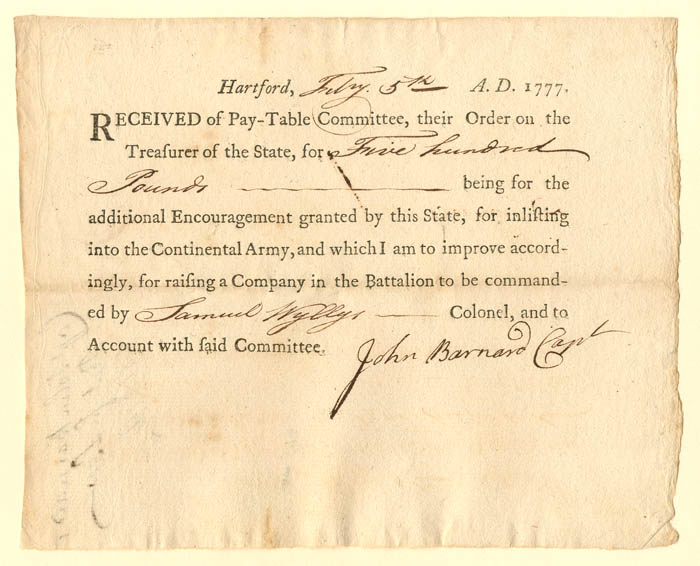 Hartford, Feby. 5th A. D. 1777.
RECEIVED of Pay-Table Committee, their Order on the
Treaſurer of the State, for Five hundred
Pounds being for the
additional Encouragement granted by this State, for inliſting
into the Continental Army, and which I am to improve accord-
ingly, for raiſing a Company in the Battalion to be command-
ed by Samuel Wyllys Colonel, and to
Account with ſaid Committee.
John Barnard Capt